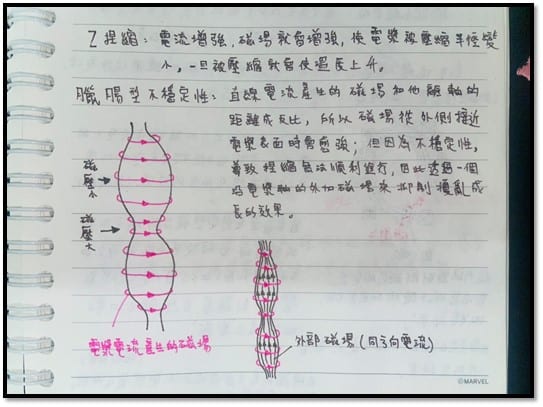 Z 捏縮：電流增強，磁場就會增強，使電漿被壓縮半徑變
小，一旦被壓縮就會使溫度上升。
臘腸型不穩定性：直線電流產生的磁場和他離軸的
距離成反比，所以磁場從外側接近
電漿表面時需愈強；但因為不穩定性，
導致捏縮無法順利進行，因此透過一個
沿電漿軸的外加磁場來抑制擾亂成
長的效果。
磁壓小
磁壓大
電漿電流產生的磁場
外部磁場(同方向電流)
©MARVEL